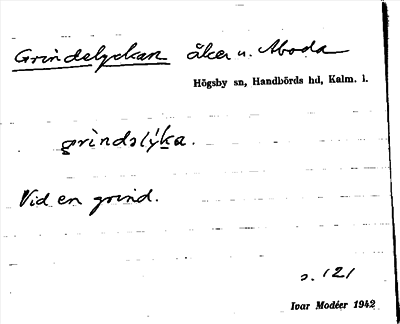 Grindelyckan åker u. Aboda
Högsby sn, Handbörds hd, Kalm. l.
grìndslýka.
Vid en grind.
s. 121
Ivar Modéer 1942